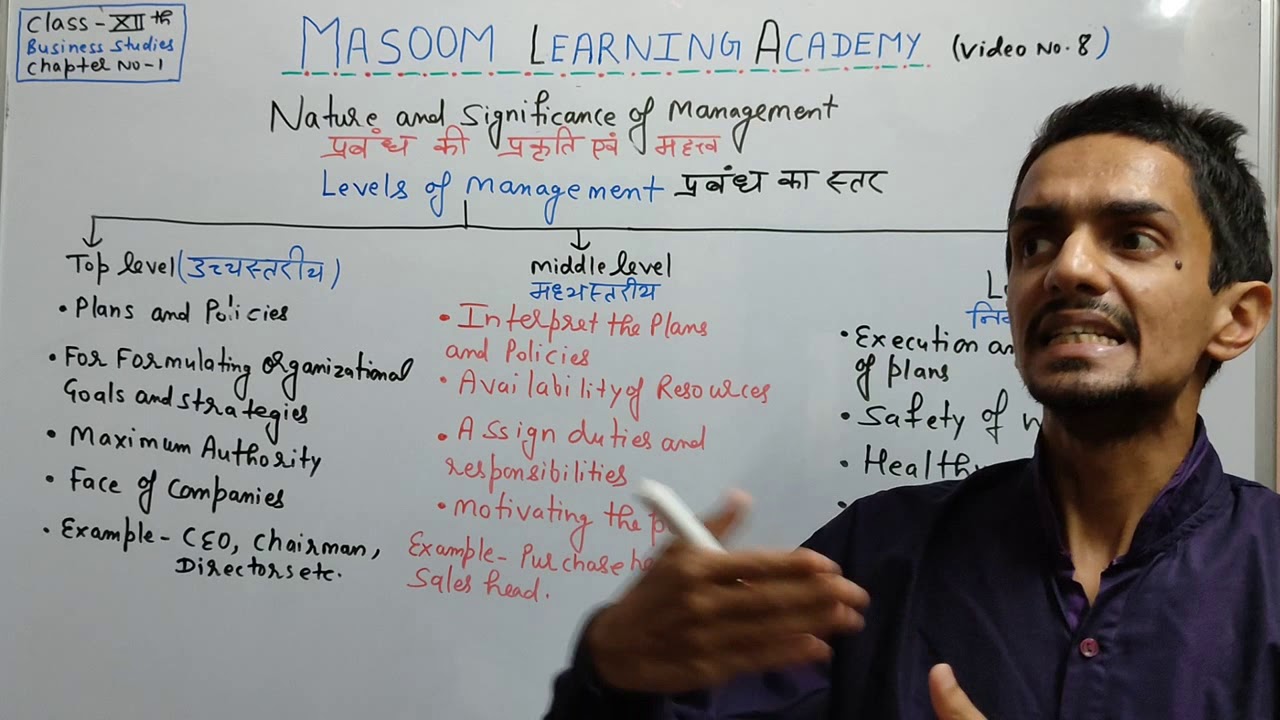 Class - XIIth
Business Studies
Chapter No-1
MASOOM LEARNING ACADEMY (Video No. 8)
Nature and Significance of Management
प्रबंध की प्रकृति एवं महत्व
Levels of Management प्रबंध का स्तर
Top level (उच्चस्तरीय)
• Plans and Policies
• For Formulating Organizational
Goals and strategies
• Maximum Authority
• Face of Companies
• Example - CEO, Chairman,
Directors etc.
Middle level
मध्यस्तरीय
• Interpret the Plans
and Policies
• Availability of Resources
• Assign duties and
responsibilities
• Motivating the
Example - Purchase
Sales head.
• Execution
of plans
• Safety of
• Health